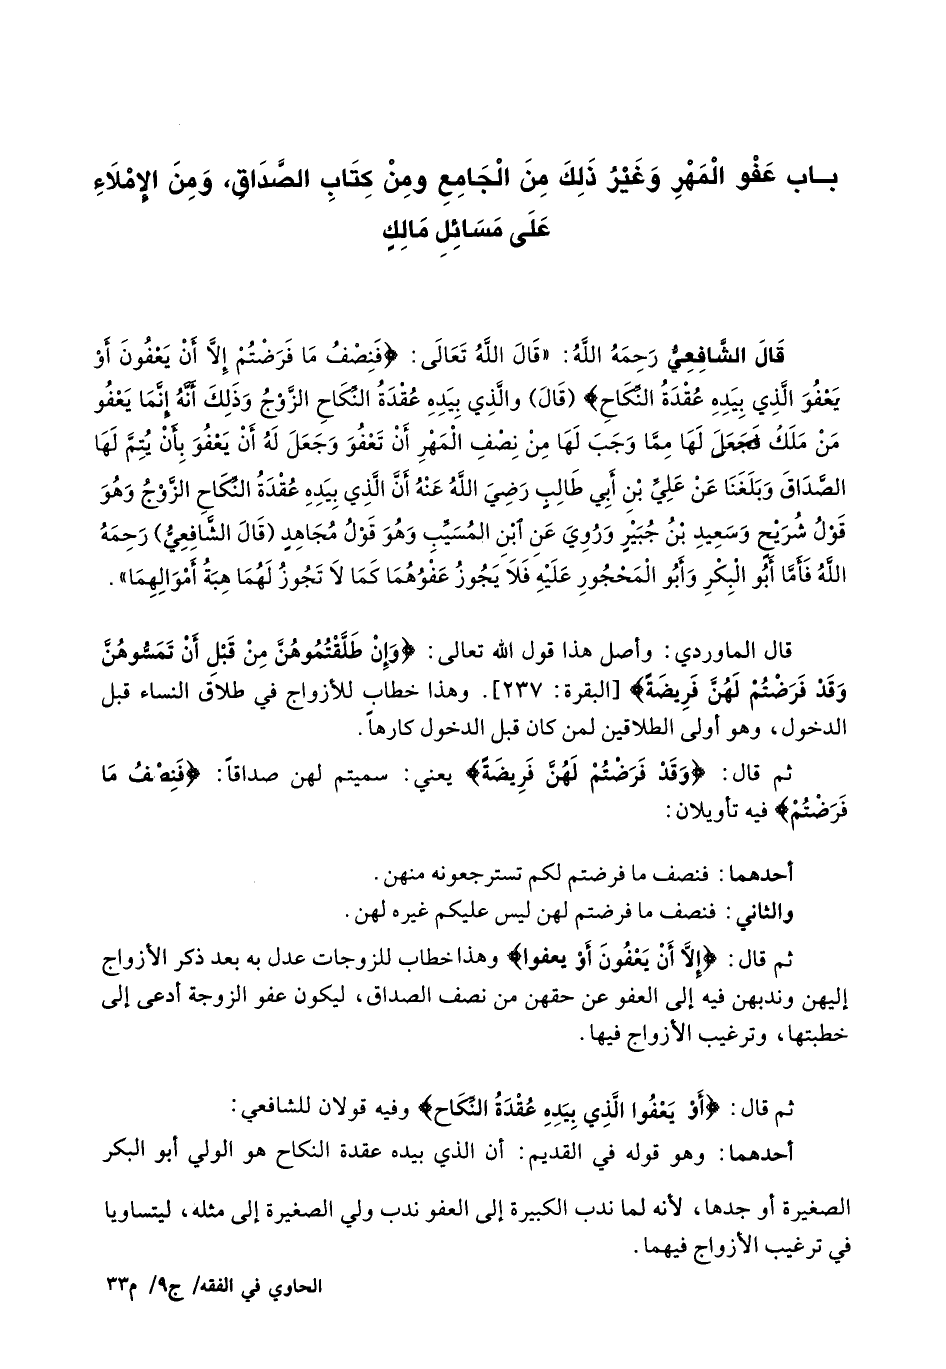 بـاب عَفْو الْمَهْرِ وَغَيْرُ ذَلِكَ مِنَ الْجَامِعِ ومِنْ كِتَابِ الصَّدَاقِ، وَمِنَ الإِمْلَاءِ
عَلَى مَسَائِلِ مَالِكٍ
قَالَ الشَّافِعِيُّ رَحِمَهُ اللَّهُ: «قَالَ اللَّهُ تَعَالَى: ﴿فَنِصْفُ مَا فَرَضْتُمْ إِلاَّ أَنْ يَعْفُونَ أَوْ
يَعْفُوَ الَّذِي بِيَدِهِ عُقْدَةُ النِّكَاحِ﴾ (قَالَ) والَّذِي بِيَدِهِ عُقْدَةُ النِّكَاحِ الزَّوْجُ وَذَلِكَ أَنَّهُ إِنَّمَا يَعْفُو
مَنْ مَلَكَ فَجَعَلَ لَهَا مِمَّا وَجَبَ لَهَا مِنْ نِصْفِ الْمَهْرِ أَنْ تَعْفُوَ وَجَعَلَ لَهُ أَنْ يَعْفُوَ بِأَنْ يُتِمَّ لَهَا
الصَّدَاقَ وَبَلَغَنَا عَنْ عَلِيِّ بْنِ أَبِي طَالِبٍ رَضِيَ اللَّهُ عَنْهُ أَنَّ الَّذِي بِيَدِهِ عُقْدَةُ النِّكَاحِ الزَّوْجُ وَهُوَ
قَوْلُ شُرَيْحٍ وَسَعِيدِ بْنُ جُبَيْرٍ وَرُوِيَ عَنِ ابْنِ الْمُسَيِّبِ وَهُوَ قَوْلُ مُجَاهِدٍ (قَالَ الشَّافِعِيُّ) رَحِمَهُ
اللَّهُ فَأَمَّا أَبُو الْبِكْرِ وَأَبُو الْمَحْجُورِ عَلَيْهِ فَلاَ يَجُوزُ عَفْوُهُمَا كَمَا لاَ تَجُوزُ لَهُمَا هِبَةُ أَمْوَالِهِمَا».
قال الماوردي: وأصل هذا قول الله تعالى: ﴿وَإِنْ طَلَّقْتُمُوهُنَّ مِنْ قَبْلِ أَنْ تَمَسُّوهُنَّ
وَقَدْ فَرَضْتُمْ لَهُنَّ فَرِيضَةً﴾ [البقرة: ٢٣٧]. وهذا خطاب للأزواج في طلاق النساء قبل
الدخول، وهو أولى الطلاقين لمن كان قبل الدخول كارهاً.
ثم قال: ﴿وَقَدْ فَرَضْتُمْ لَهُنَّ فَرِيضَةً﴾ يعني: سميتم لهن صداقاً: ﴿فَنِصْفُ مَا
فَرَضْتُمْ﴾ فيه تأويلان:
أحدهما: فنصف ما فرضتم لكم تسترجعونه منهن.
والثاني: فنصف ما فرضتم لهن ليس عليكم غيره لهن.
ثم قال: ﴿إِلاَّ أَنْ يَعْفُونَ أَوْ يعفوا﴾ وهذا خطاب للزوجات عدل به بعد ذكر الأزواج
إليهن وندبهن فيه إلى العفو عن حقهن من نصف الصداق، ليكون عفو الزوجة أدعى إلى
خطبتها، وترغيب الأزواج فيها.
ثم قال: ﴿أَوْ يَعْفُوا الَّذِي بِيَدِهِ عُقْدَةُ النِّكَاحِ﴾ وفيه قولان للشافعي:
أحدهما: وهو قوله في القديم: أن الذي بيده عقدة النكاح هو الولي أبو البكر
الصغيرة أو جدها، لأنه لما ندب الكبيرة إلى العفو ندب ولي الصغيرة إلى مثله، ليتساويا
في ترغيب الأزواج فيهما.
الحاوي في الفقه/ ج٩/ م٣٣